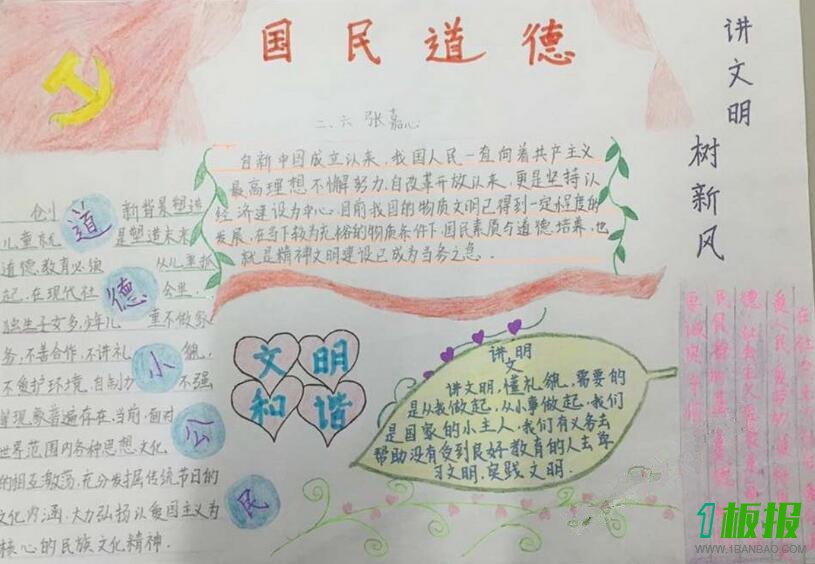 国民道德
讲文明
树新风
二、六 张嘉心
自新中国成立以来，我国人民一直向着共产主义
最高理想不懈努力，自改革开放以来，更是坚持以
经济建设为中心。目前我国的物质文明已得到一定程度的
发展，在当下较为充裕的物质条件下，国民素质与道德培养，也
就是精神文明建设已成为当务之急。
道德小公民
创 新背景塑造
儿童就 是塑造未来
道德教育必须 从儿童抓
起，在现代社 会里，
独生子女多，少年儿 童不做家
务，不善合作，不讲礼 貌，
不爱护环境，自制力 不强
等现象普遍存在，当前，面对
世界范围内各种思想文化
的相互激荡，充分发挥传统节日的
文化内涵，大力弘扬以爱国主义为
核心的民族文化精神．
文明
和谐
讲文明
讲文明，懂礼貌，需要的
是从我做起，从小事做起，我们
是国家的小主人，我们有义务去
帮助没有受到良好教育的人去学
习文明，实践文明．
1板报
WWW.1BANBAO.COM